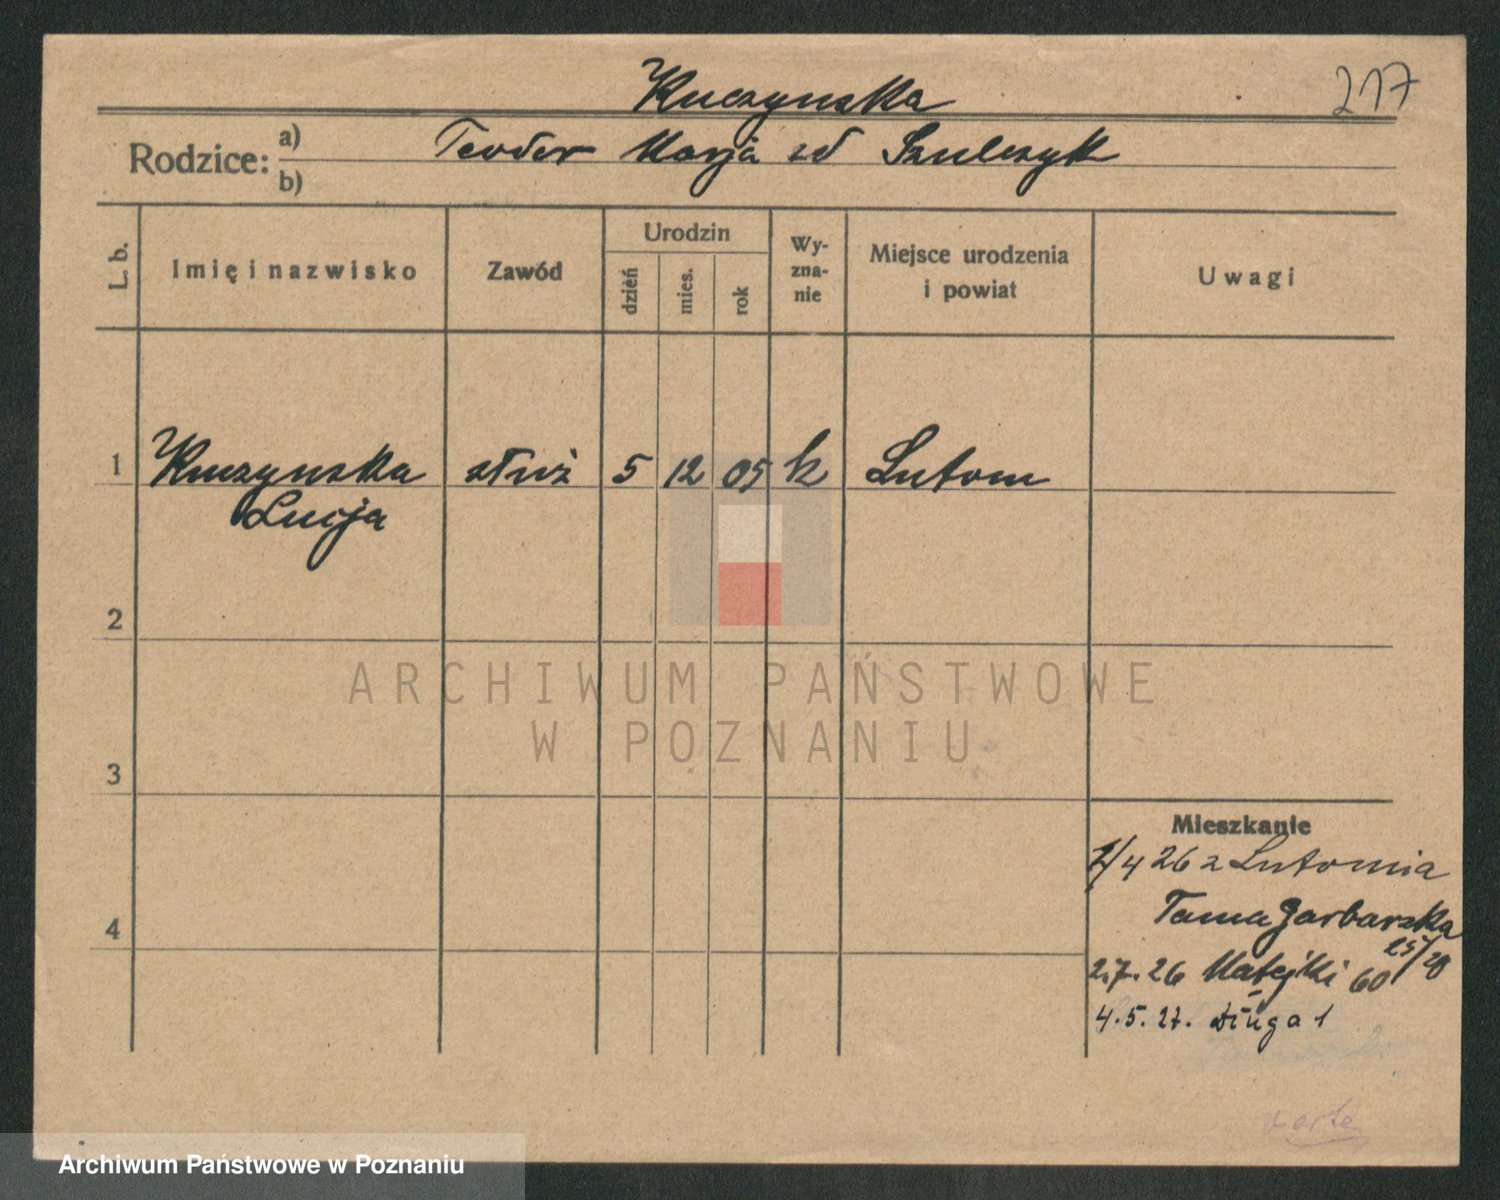 Kuczynska
217
Rodzice: a) Teodor Marja zd Szulczyk
b)
L. b.
Imię i nazwisko
Zawód
Urodzin
dzień
mies.
rok
Wy-
zna-
nie
Miejsce urodzenia
i powiat
Uwagi
1 Kuczynska służ 5 12 05 k Lutom
Lucja
2
3
4
ARCHIWUM PAŃSTWOWE
W POZNANIU
Mieszkanie
1/4 26 z Lutomia
Tama Garbarska
25/
2.7.26 Matejki 60
4.5.27. Długa 1
Archiwum Państwowe w Poznaniu